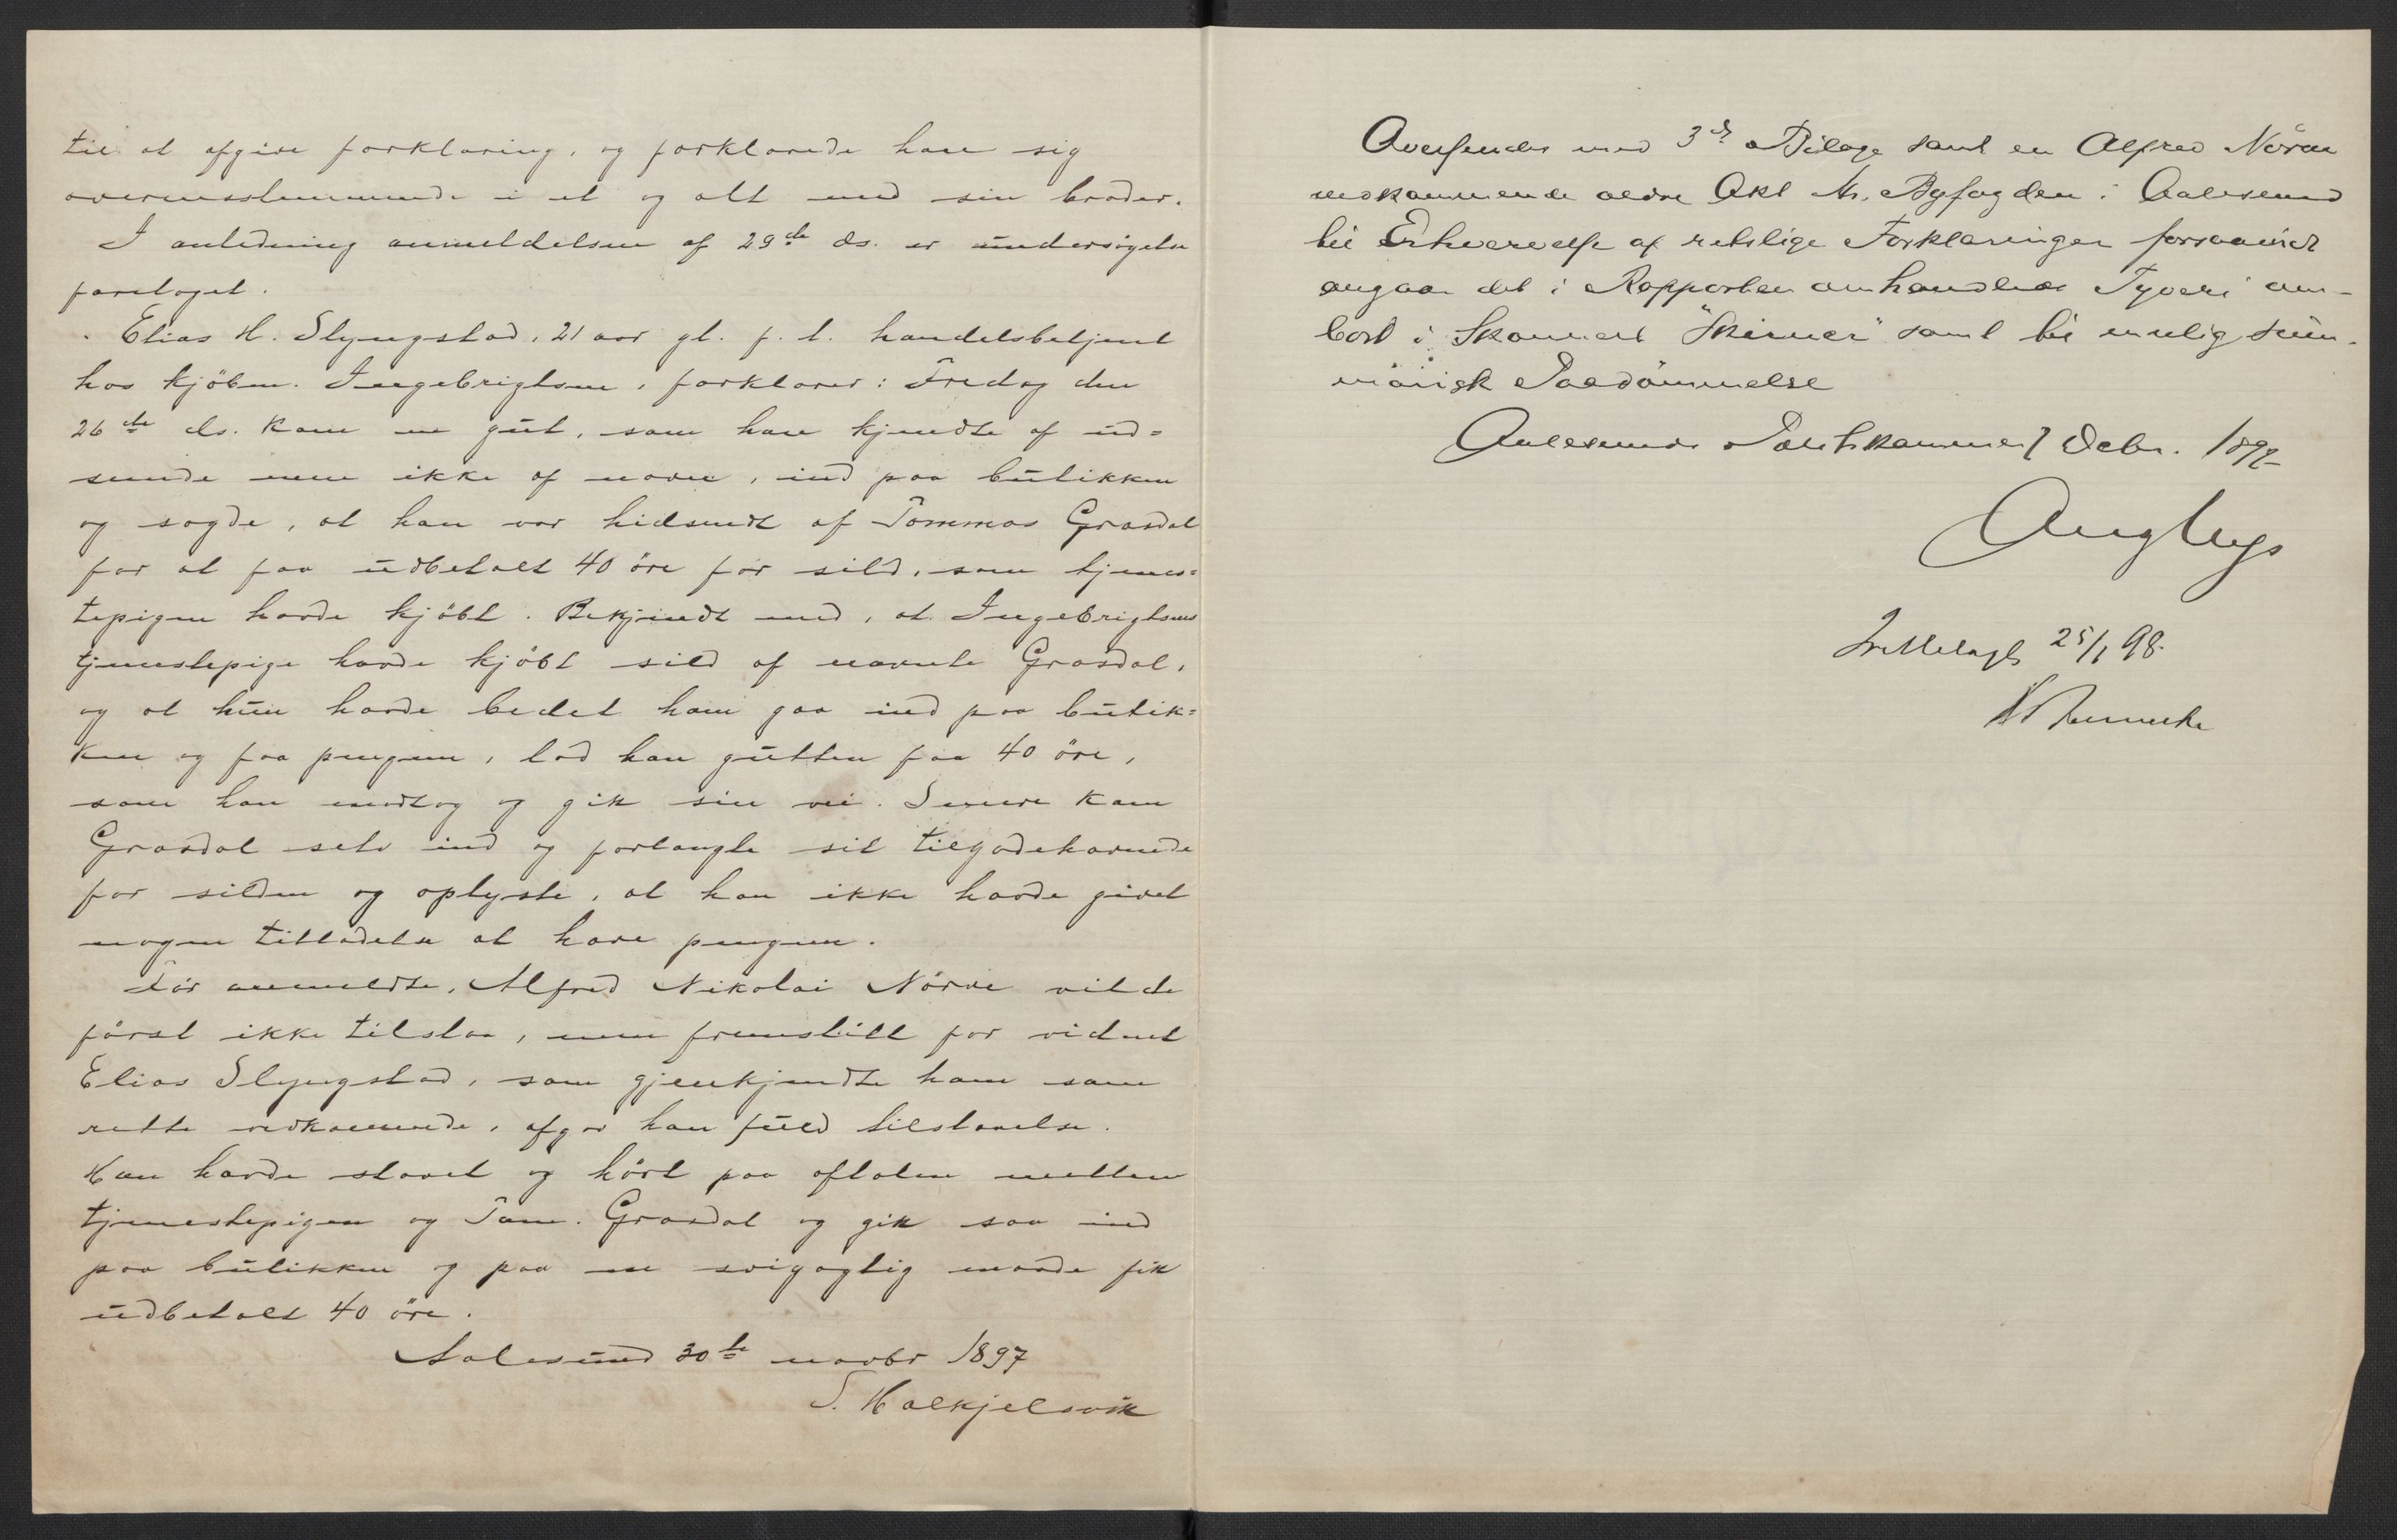 til at afgive forklaring, og forklarede han sig
overensstemmende i et og alt med sin broder.
I anledning anmeldelsen af 29de ds. er undersøgelse
foretaget.
Elias H. Slyngstad, 21 aar gl. f. t. handelsbetjent
hos kjöbm. Ingebrigtsen, forklarer: Fredag den
26de ds. kom en gut, som han kjendte af ud=
seende men ikke af navn, ind paa butikken
og sagde, at han var hidsendt af Tommas Grasdal
for at faa udbetalt 40 öre for sild, som tjenes=
tepigen havde kjöbt. Bekjendt med, at Ingebrigtsens
tjenestepige havde kjöbt sild af nævnte Grasdal,
og at hun havde bedet ham gaa ind paa butik=
ken og faa pengene, lod han gutten faa 40 öre,
som han modtog og gik sin vei. Senere kom
Grasdal selv ind og forlangte sit tilgodehavende
for silden og oplyste, at han ikke havde givet
nogen tilladelse at hæve pengene.
Før anmeldte, Alfred Nikolai Nörve vilde
först ikke tilstaa, men fremstillt for vidnet
Elias Slyngstad, som gjenkjendte ham som
rette vedkommende, afgav han fuld tilstaaelse.
Han havde staaet og hört paa aftalen mellem
tjenestepigen og Tom. Grasdal og gik saa ind
paa butikken og paa en svigagtig maade fik
udbetalt 40 öre.
Aalesund 30te novbr 1897
S. Halkjelsvik
Oversendes med 3de Bilage samt en Alfred Nörve
vedkommende ældre Akt Hr. Byfogden i Aalesund
til Erhvervelse af retslige Forklaringer forsaavidt
angaar det i Rapporten omhandlede Tyveri om-
bord i Skonnert "Skirner" samt til mulig sum-
marisk Paadömmelse
Aalesunds Politikammer 7 Decbr. 1897
Fremlagt 25/1 98.